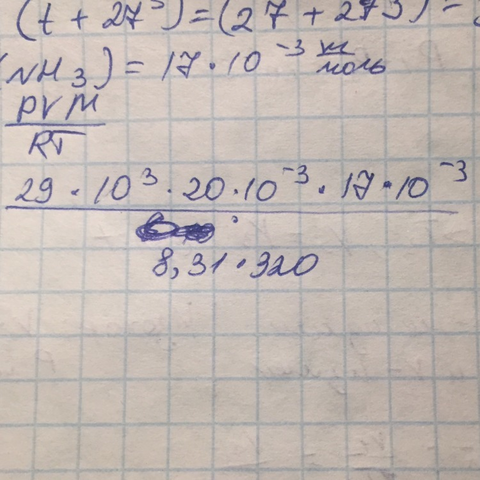 (t + 273) = (27 + 273) =
(NH₃) = 17 · 10⁻³ кг/моль
PVM
RT
29 · 10³ · 20 · 10⁻³ · 17 · 10⁻³
8,31 · 320